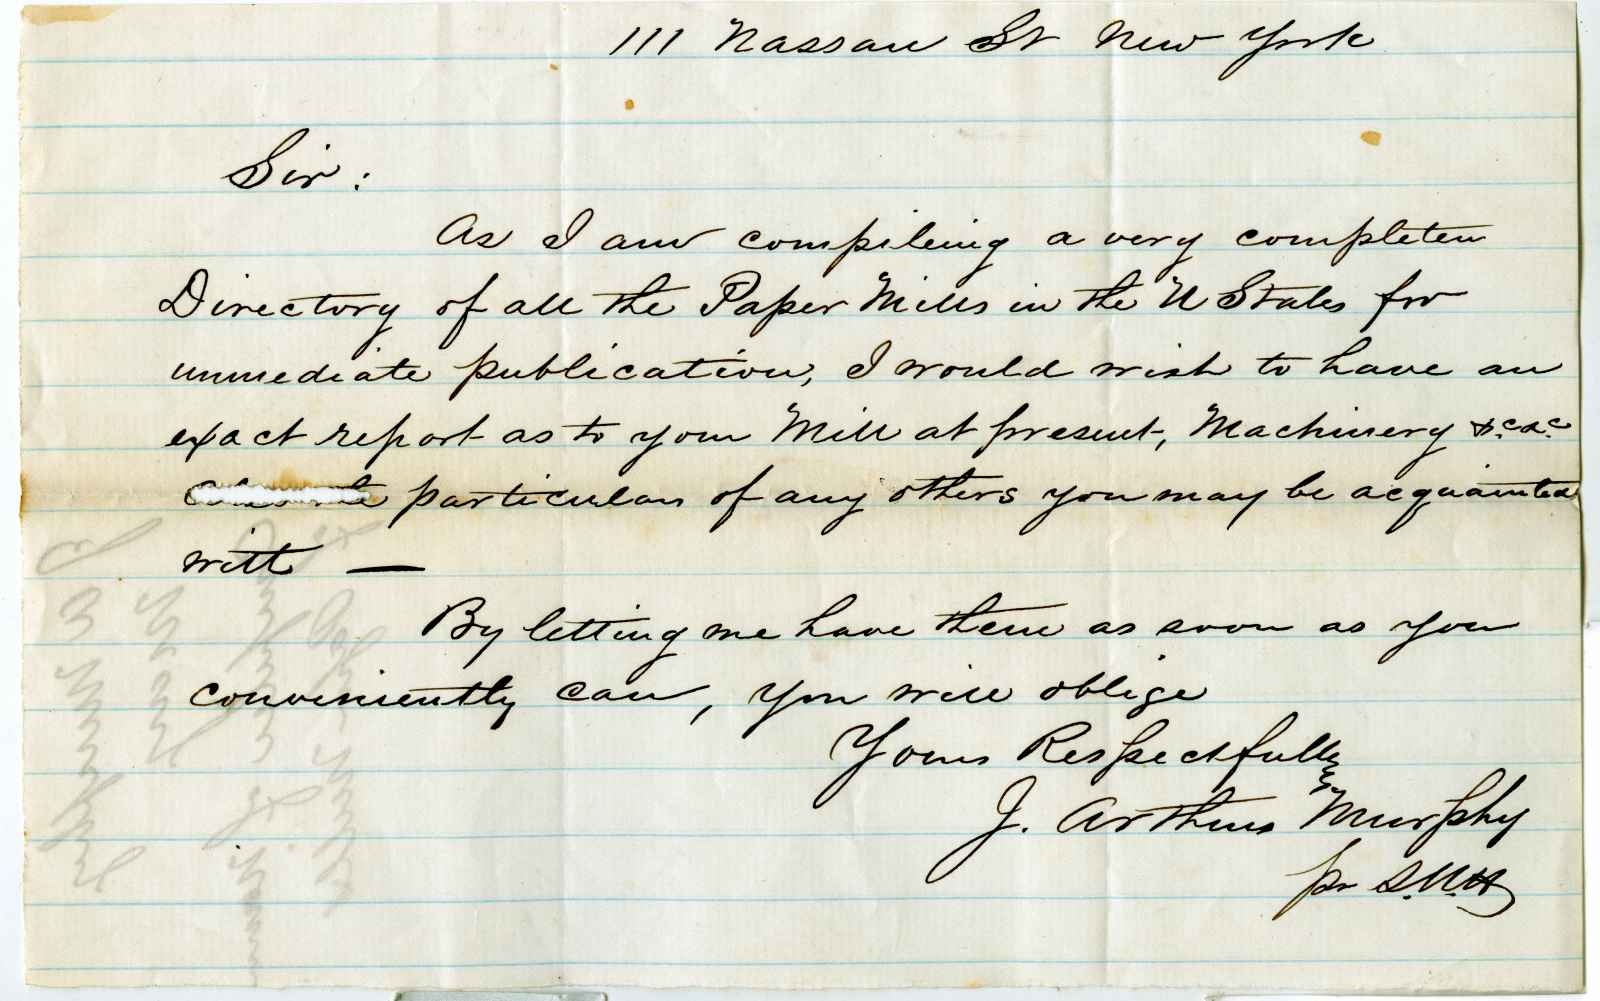 111 Nassau St New York
Sir:
As I am compileing a very complete
Directory of all the Paper Mills in the U States for
immediate publication, I would wish to have an
exact report as to your Mill at present, Machinery &c &c
particulars of any others you may be acquainted
with —
By letting me have them as soon as you
conveniently can, you will oblige
Yours Respectfully
J. Arthur Murphy
pr